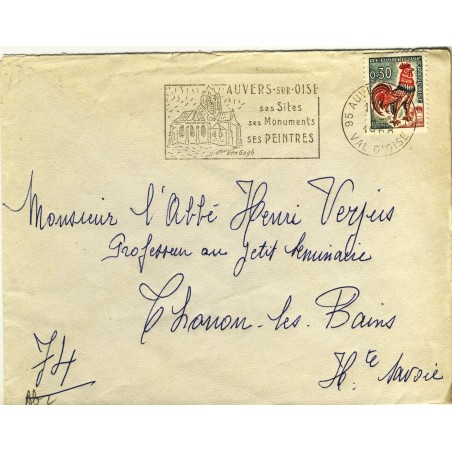 AUVERS-SUR-OISE
ses Sites
ses Monuments
ses PEINTRES
Van Gogh
0,30
95 AUV
VAL D'OISE
Monsieur l'Abbé Henri Verjus
Professeur au petit séminaire
Thonon-les-Bains
74
Hte Savoie